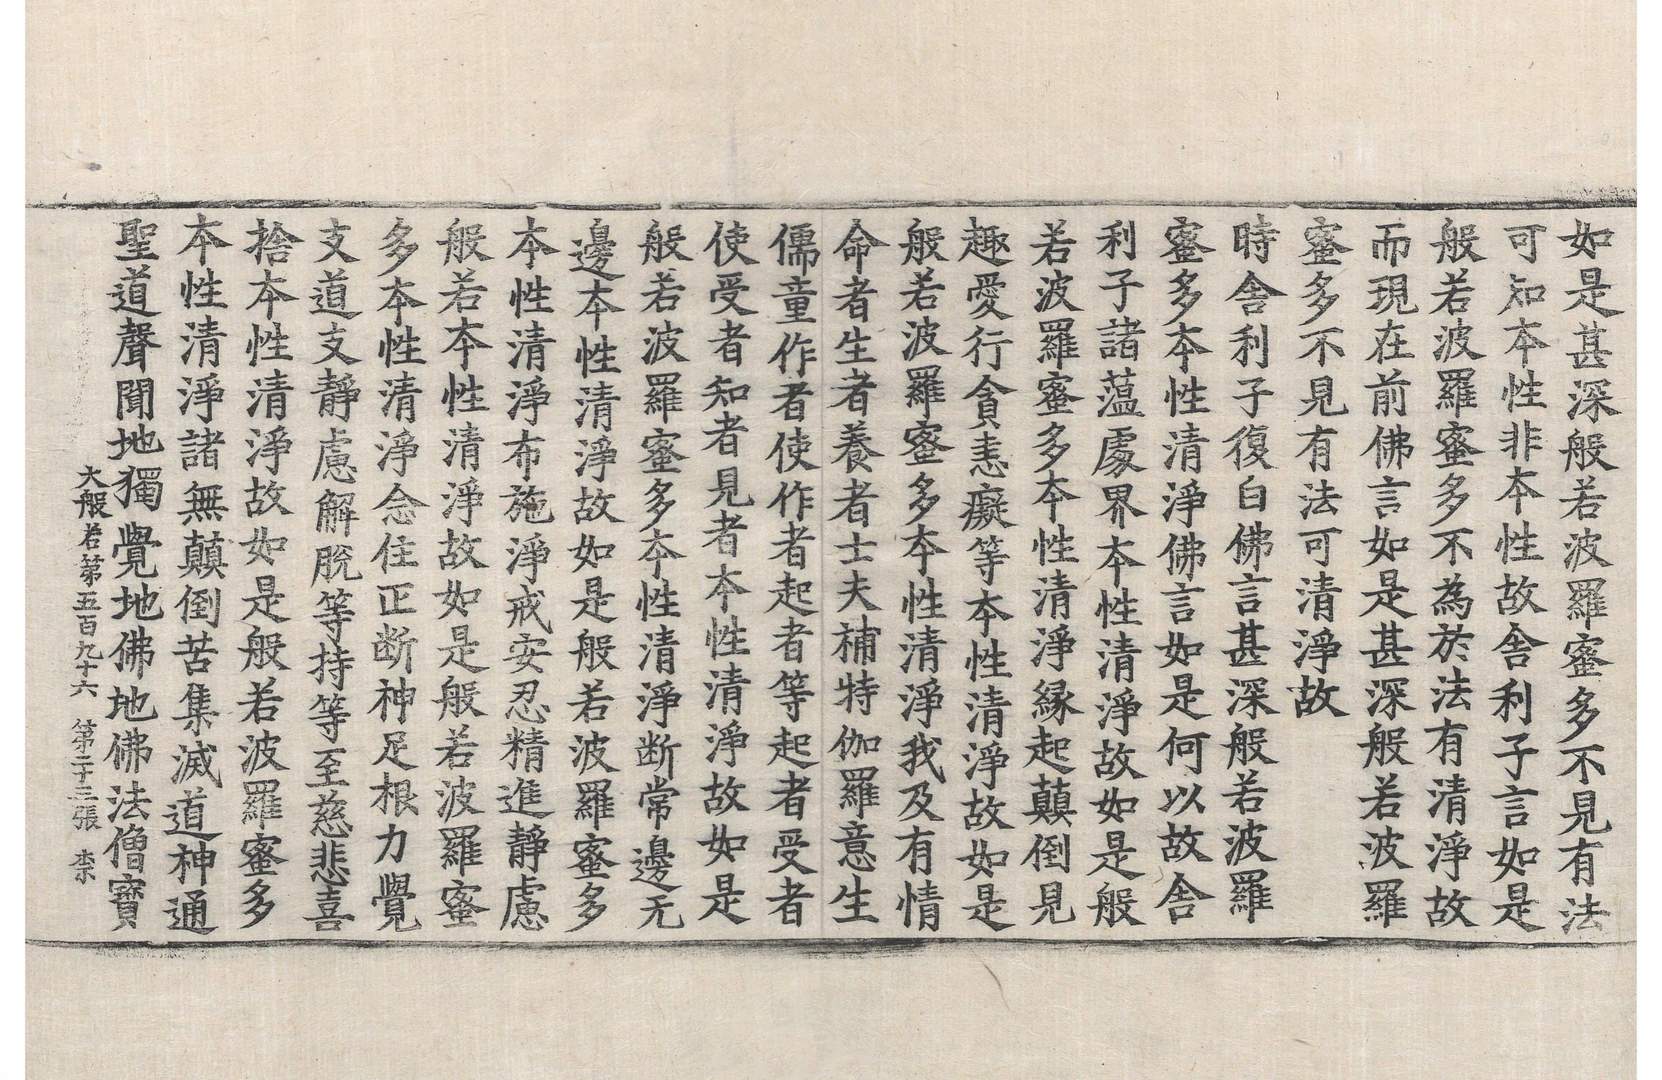 如是甚深般若波羅蜜多不見有法
可知本性非本性故舍利子言如是
般若波羅蜜多不為於法有清淨故
而現在前佛言如是甚深般若波羅
蜜多不見有法可清淨故
時舍利子復白佛言甚深般若波羅
蜜多本性清淨佛言如是何以故舍
利子諸蘊處界本性清淨故如是般
若波羅蜜多本性清淨緣起顛倒見
趣愛行貪恚癡等本性清淨故如是
般若波羅蜜多本性清淨我及有情
命者生者養者士夫補特伽羅意生
儒童作者使作者起者等起者受者
使受者知者見者本性清淨故如是
般若波羅蜜多本性清淨断常邊无
邊本性清淨故如是般若波羅蜜多
本性清淨布施淨戒安忍精進靜慮
般若本性清淨故如是般若波羅蜜
多本性清淨念住正断神足根力覺
支道支靜慮解脫等持等至慈悲喜
捨本性清淨故如是般若波羅蜜多
本性清淨諸無顛倒苦集滅道神通
聖道聲聞地獨覺地佛地佛法僧寶
大般若第五百九十六 第二十三張 李